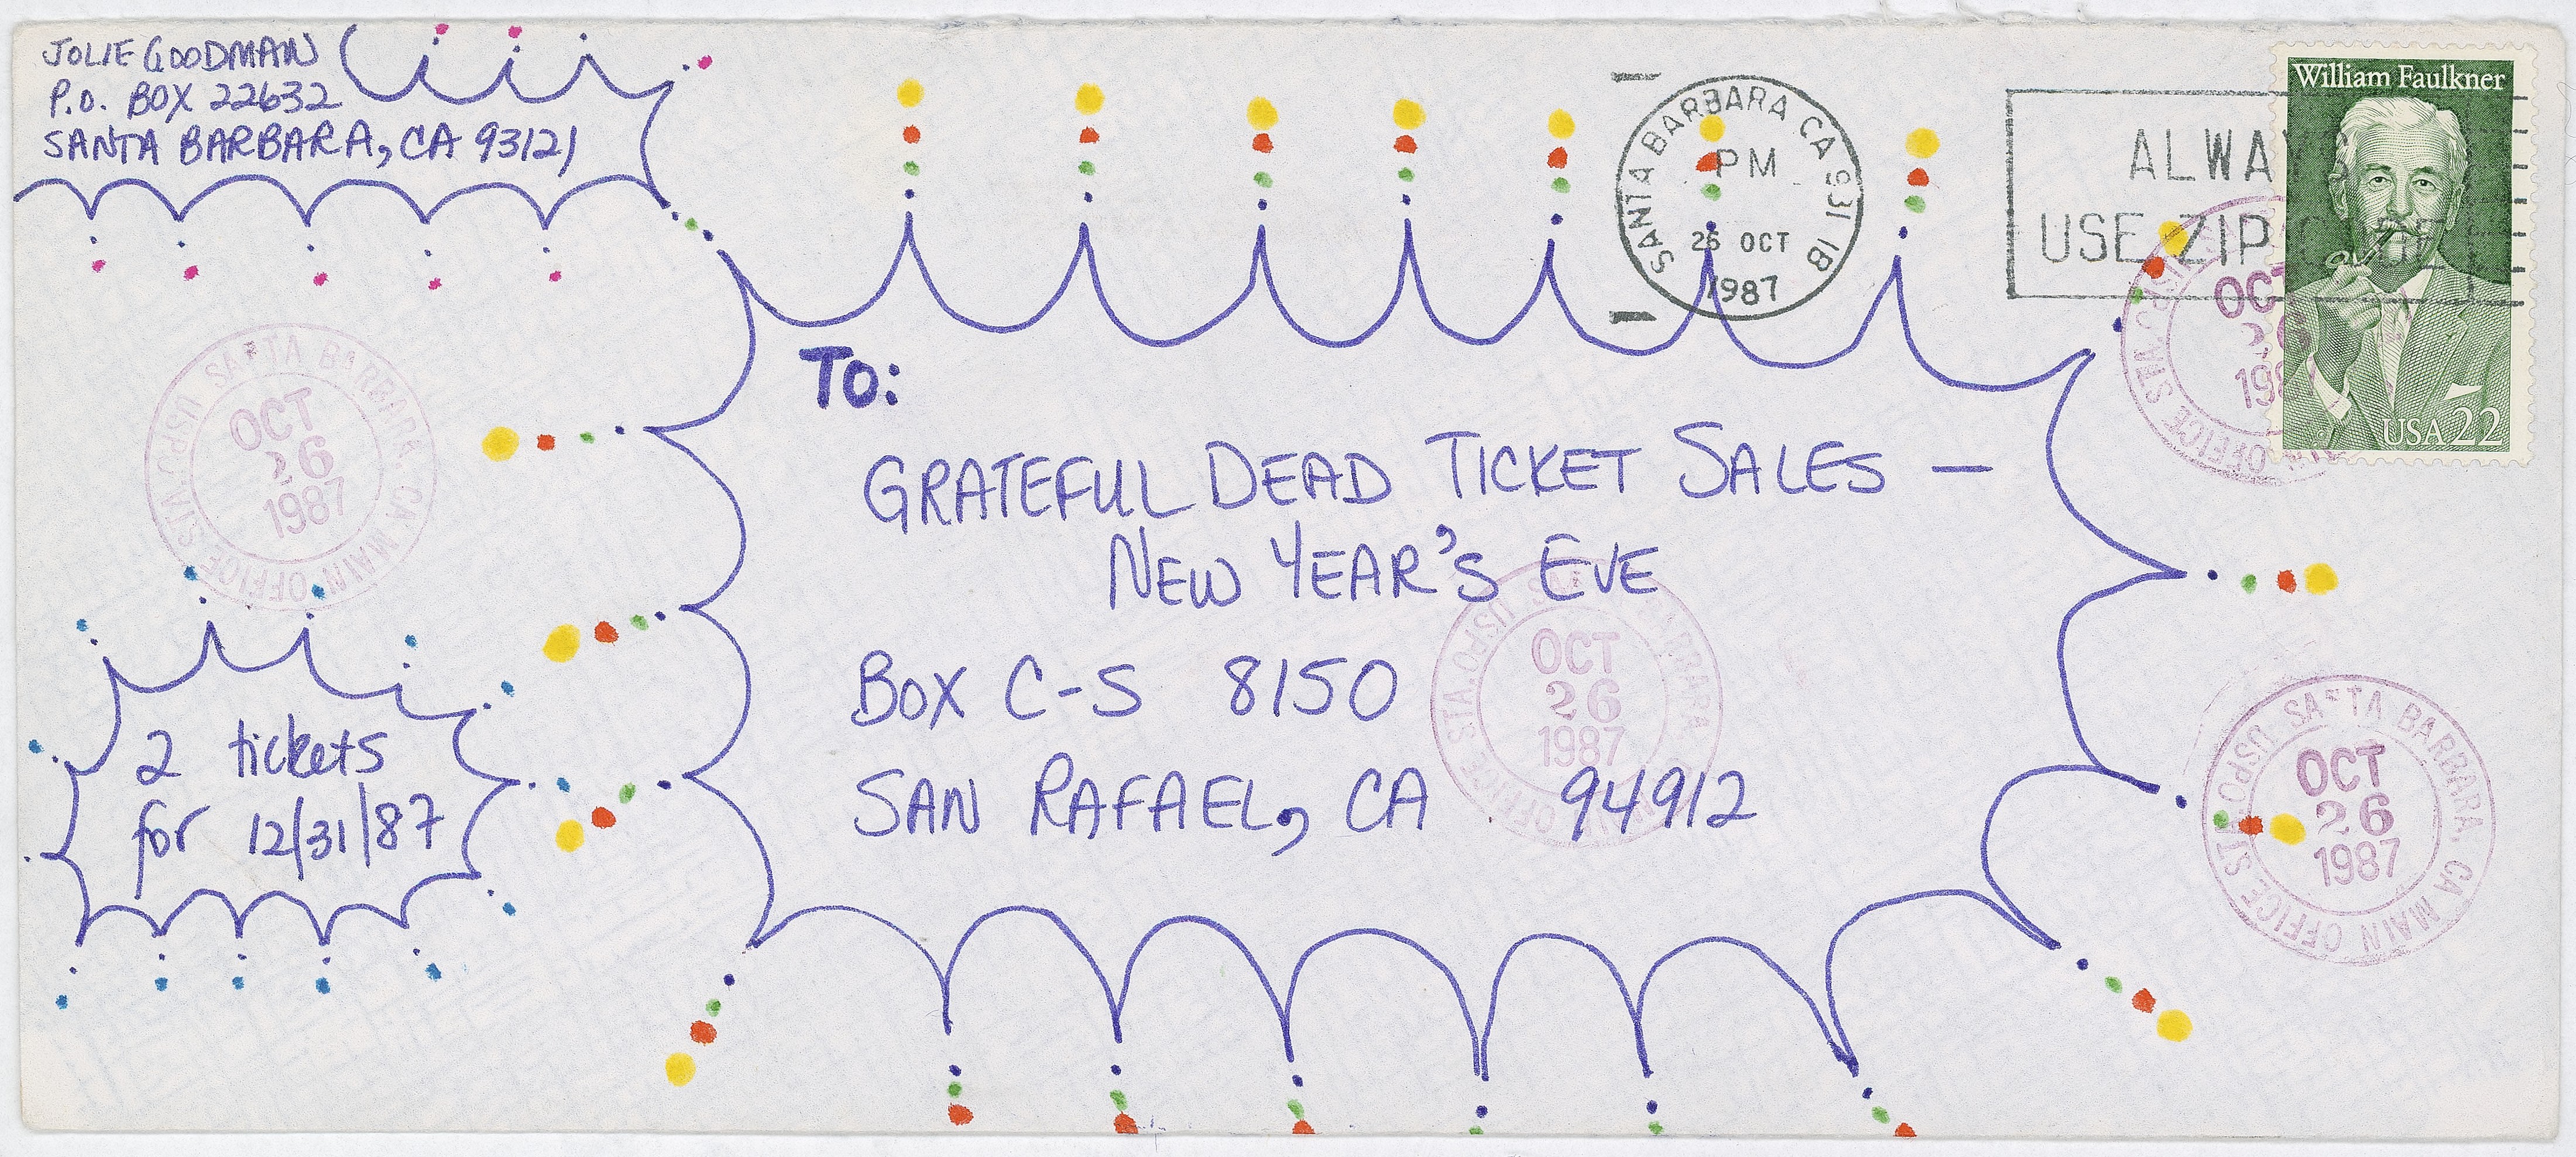 JOLIE GOODMAN
P.O. BOX 22632
SANTA BARBARA, CA 93121
SANTA BARBARA CA 931 IB
PM
26 OCT
1987
ALWAYS
USE ZIP CODE
William Faulkner
USA 22
TO:
GRATEFUL DEAD TICKET SALES —
NEW YEAR'S EVE
BOX C-S 8150
SAN RAFAEL, CA 94912
2 tickets
for 12/31/87
SANTA BARBARA, CA MAIN OFFICE STA. USPO
OCT
26
1987
MAIN OFFICE STA. USPO
OCT
26
1987
SANTA BARBARA, CA MAIN OFFICE STA. USPO
OCT
26
1987
SANTA BARBARA, CA MAIN OFFICE STA. USPO
OCT
26
1987